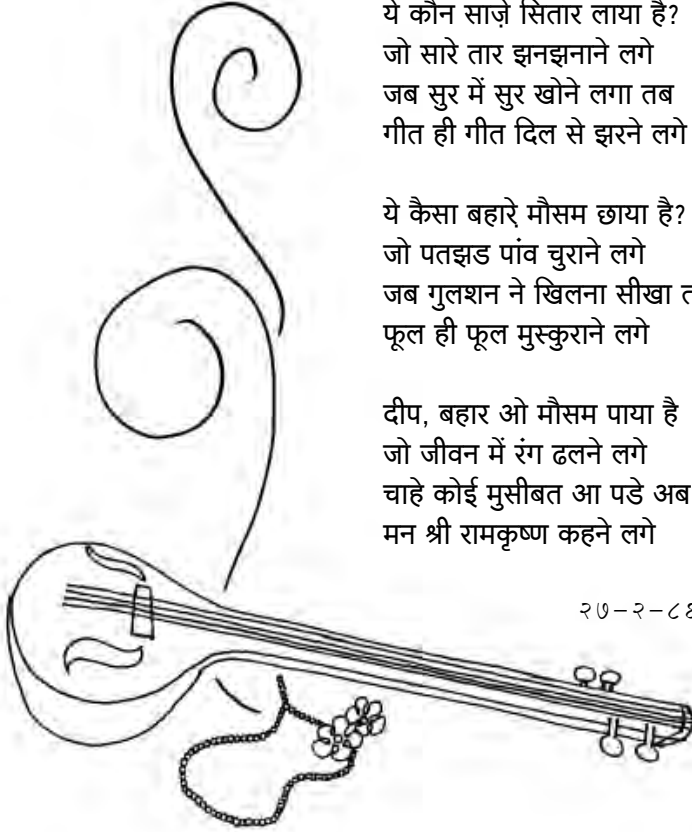 ये कौन साज़े सितार लाया है?
जो सारे तार झनझनाने लगे
जब सुर में सुर खोने लगा तब
गीत ही गीत दिल से झरने लगे
ये कैसा बहारे मौसम छाया है?
जो पतझड पांव चुराने लगे
जब गुलशन ने खिलना सीखा
फूल ही फूल मुस्कुराने लगे
दीप, बहार ओ मौसम पाया है
जो जीवन में रंग ढलने लगे
चाहे कोई मुसीबत आ पडे अब
मन श्री रामकृष्ण कहने लगे
२७-२-८